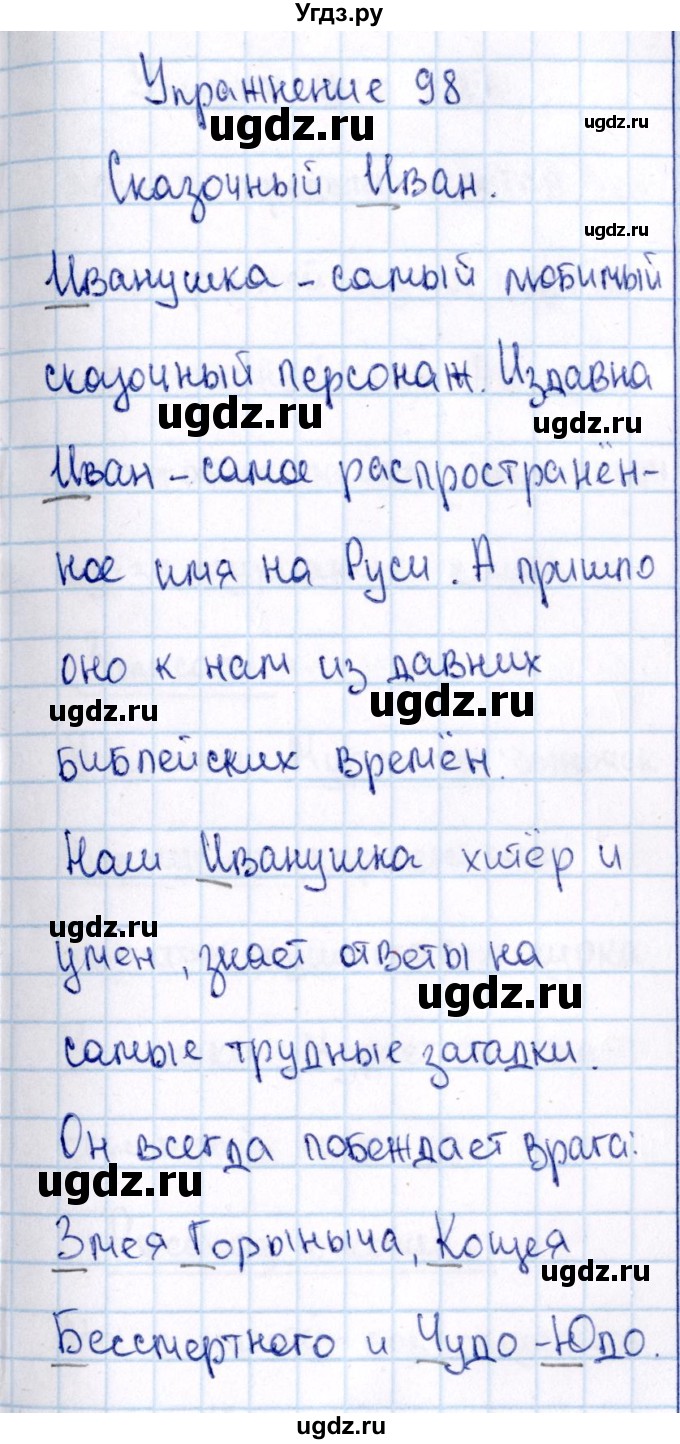 Угдз.ру
Упражнение 98
ugdz.ru
ugdz.ru
Сказочный Иван.
ugdz.ru
Иванушка - самый любимый
сказочный персонаж. Издавна
ugdz.ru
ugdz.ru
Иван - самое распространён-
ное имя на Руси. А пришло
оно к нам из давних
ugdz.ru
ugdz.ru
библейских времён.
Наш Иванушка хитёр и
ugdz.ru
умен, знает ответы на
ugdz.ru
самые трудные загадки.
Он всегда побеждает врага:
ugdz.ru
Змея Горыныча, Кощея
ugdz.ru
Бессмертного и Чудо-Юдо.
ugdz.ru